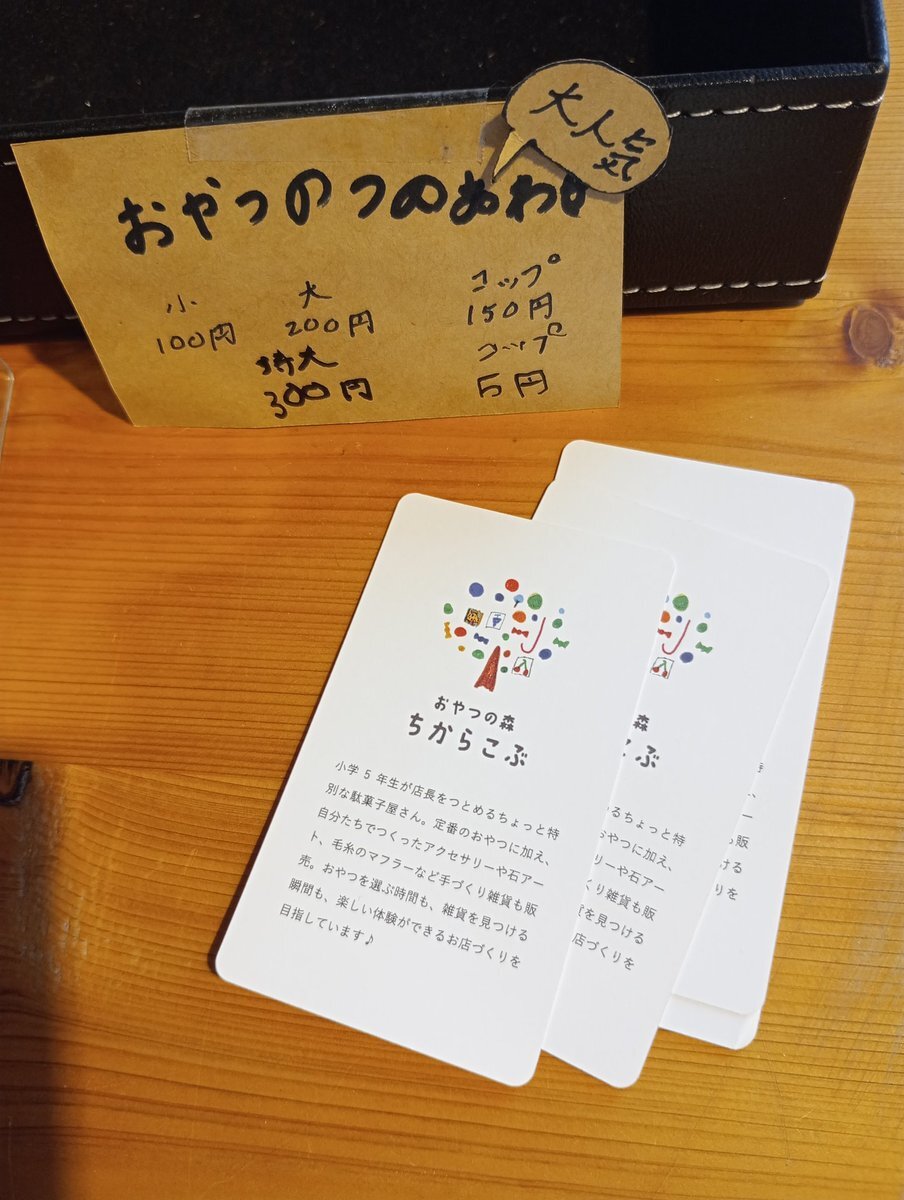 大人気
おやつのつめあわ
小 大 コップ
100円 200円 150円
特大 コップ
300円 5円
おやつの森
ちからこぶ
小学 5 年生が店長をつとめるちょっと特
別な駄菓子屋さん。定番のおやつに加え、
自分たちでつくったアクセサリーや石アー
ト、毛糸のマフラーなど手づくり雑貨も販
売。おやつを選ぶ時間も、雑貨を見つける
瞬間も、楽しい体験ができるお店づくりを
目指しています♪
森
こぶ
るちょっと特
おやつに加え、
リーや石アー
くり雑貨も販
貨を見つける
店づくりを
も販
つける
りを